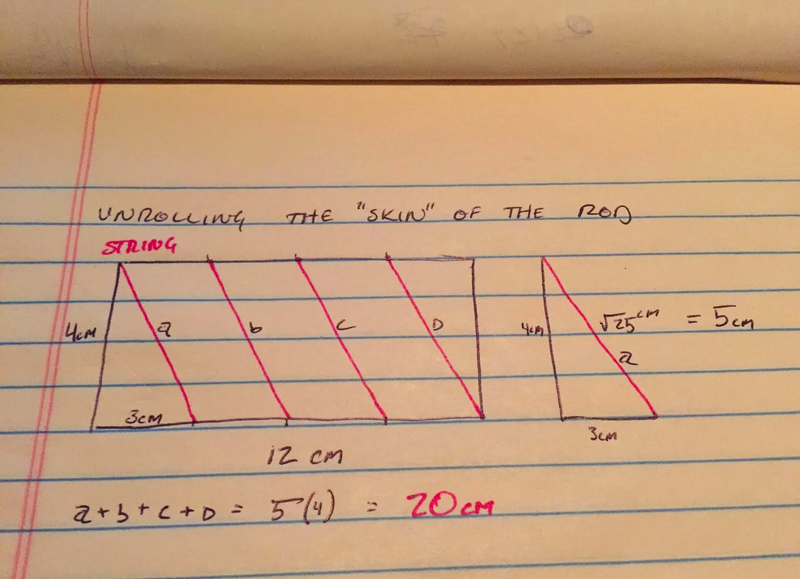 UNROLLING THE "SKIN" OF THE ROD
STRING
4cm a b c D
3cm
12 cm
4cm √25 cm = 5cm
a
3cm
a + b + c + D = 5(4) = 20cm